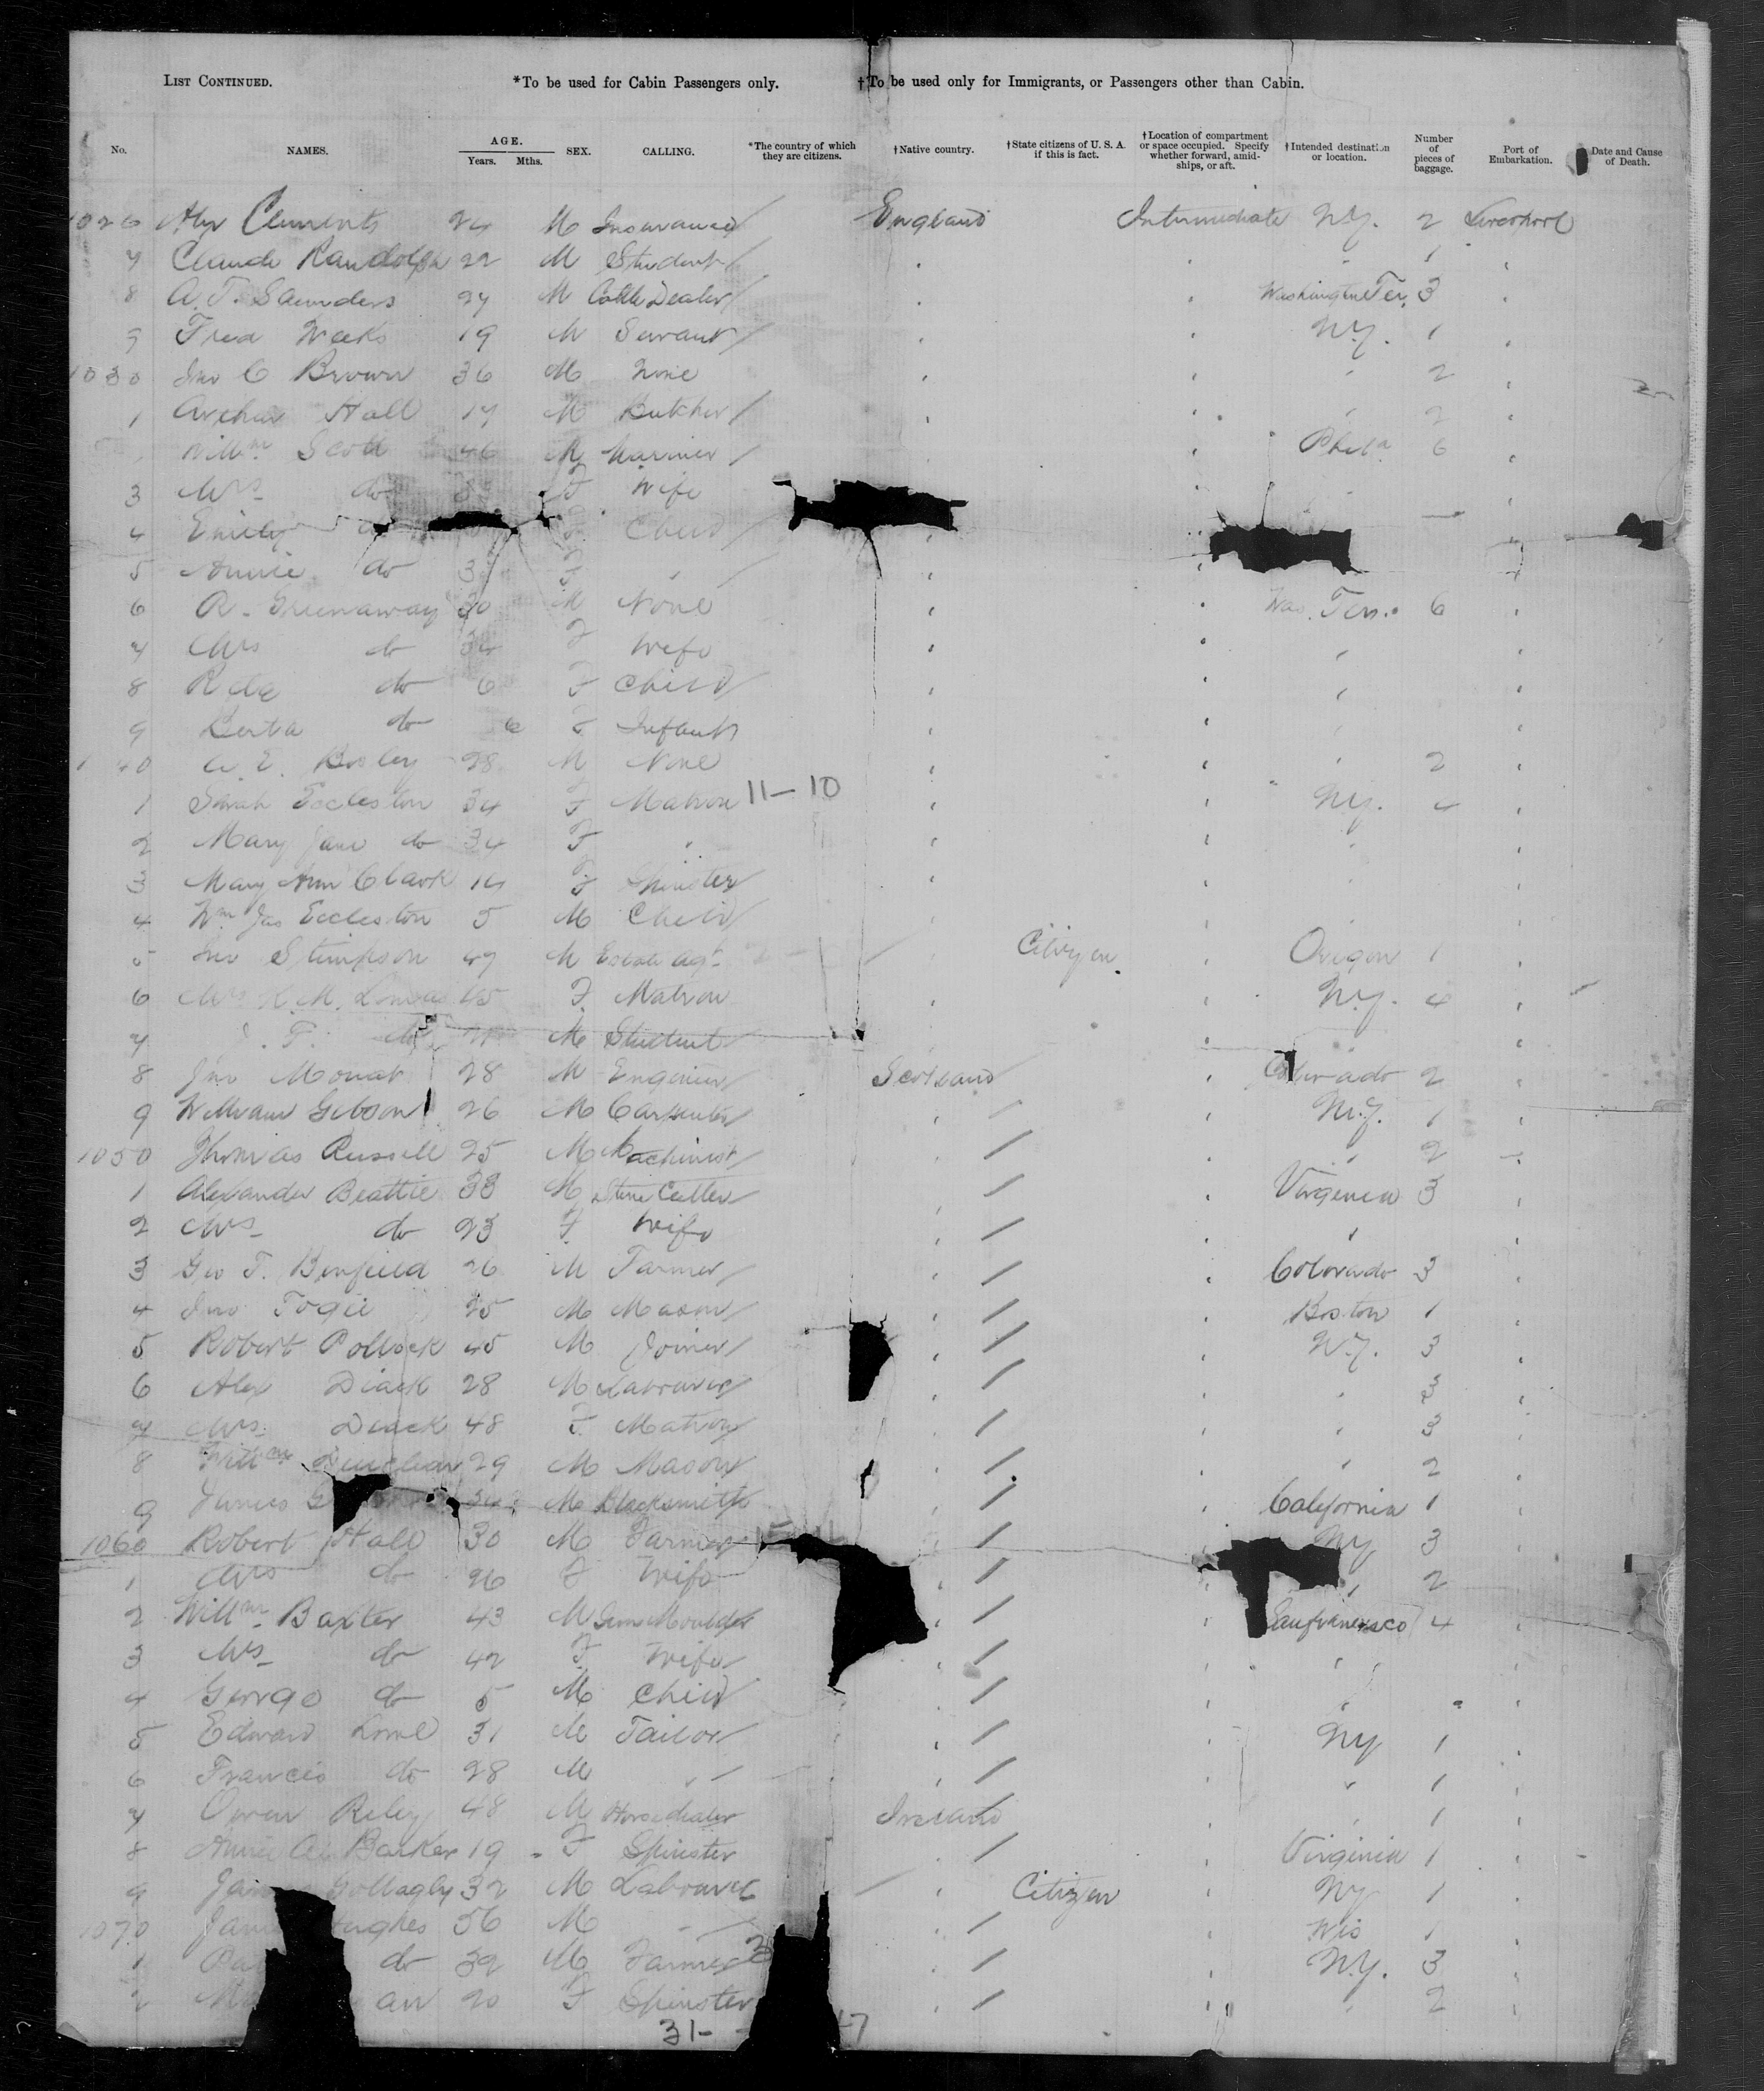 LIST CONTINUED. *To be used for Cabin Passengers only. †To be used only for Immigrants, or Passengers other than Cabin.
No. NAMES. AGE. Years. Mths. SEX. CALLING. *The country of which they are citizens. †Native country. †State citizens of U. S. A. if this is fact. †Location of compartment or space occupied. Specify whether forward, amid-ships, or aft. †Intended destination or location. Number of pieces of baggage. Port of Embarkation. Date and Cause of Death.
1026 Alex Clements 24 M Insurance England Intermediate N.Y. 2 Liverpool
7 Claude Randolph 22 M Student " " " 1 "
8 A. T. Saunders 27 M Cattle Dealer " " Washington Ter. 3 "
9 Fred Weeks 19 M Servant " " N.Y. 1 "
1030 Jno C Brown 36 M None " " " 2 "
1 Arthur Hall 17 M Butcher " " " 2 "
Willm Scott 46 M Mariner " " Phila 6 "
3 Mrs do F Wife " "
4 Emily F Child " — "
5 Annie do 3 F " " " "
6 R. Greenaway 30 M None " " Was. Terr. 6 "
7 Mrs do 34 F Wife " " " "
8 Rda do 6 F Child " " " "
9 Berta do 6 F Infant " " " "
1 40 A. E. Bosley 28 M None " " " 2 "
1 Sarah Eccleston 34 F Matron 11-10 " " N.Y. 4 "
2 Mary Jane do 34 F " " " " "
3 Mary Ann Clark 14 F Spinster " " " "
4 Wm Jas Eccleston 5 M Child " " "
5 Jno Stimpson 47 M Estate Agt Citizen " Oregon 1 "
6 Mrs M. 45 F. Matron " " N.Y. 4 "
7 F. do M Student " "
8 Jno Mouat 28 M Engineer Scotland " Colorado 2 "
9 William Gibson 26 M Carpenter " " N.Y. 1 "
1050 Thomas Russell 25 M Machinist " " " 2 "
1 Alexander Beattie 33 M Stone Cutter " " Virginia 3 "
2 Mrs do 23 F Wife " " " "
3 Geo T. Benfield 26 M Farmer " " Colorado 3 "
4 Jno Fogie 25 M Mason " " Boston 1 "
5 Robert Pollock 45 M Joiner " " N.Y. 3 "
6 Alex Diack 28 M Labourer " " " 3 "
7 Mrs. Diack 48 F. Matron " " " 3 "
8 Willm 29 M Mason " " " 2 "
9 James G 34 M Blacksmith " " California 1 "
1060 Robert Hall 30 M Farmer " NY 3 "
1 Mrs do 26 F Wife " " " 2 "
2 Willm Baxter 43 M Iron Moulder " " Sanfrancisco 4 "
3 Mrs do 42 F Wife " " " "
4 George do 5 M Child " " " "
5 Edward Lowe 31 M Tailor " " NY 1 "
6 Francis do 28 M " " " " 1 "
7 Owen Riley 48 M Horse dealer Ireland " " 1 "
8 Annie A. Barker 19 F Spinster " " Virginia 1 "
9 Jam Gollagly 32 M Labourer " Citizen " NY 1 "
1070 Jam Hughes 56 M " " " Wis 1 "
1 Pa do 39 M Farmer " " N.Y. 3 "
2 Ma an 20 F Spinster " " " 2 "
31- 7